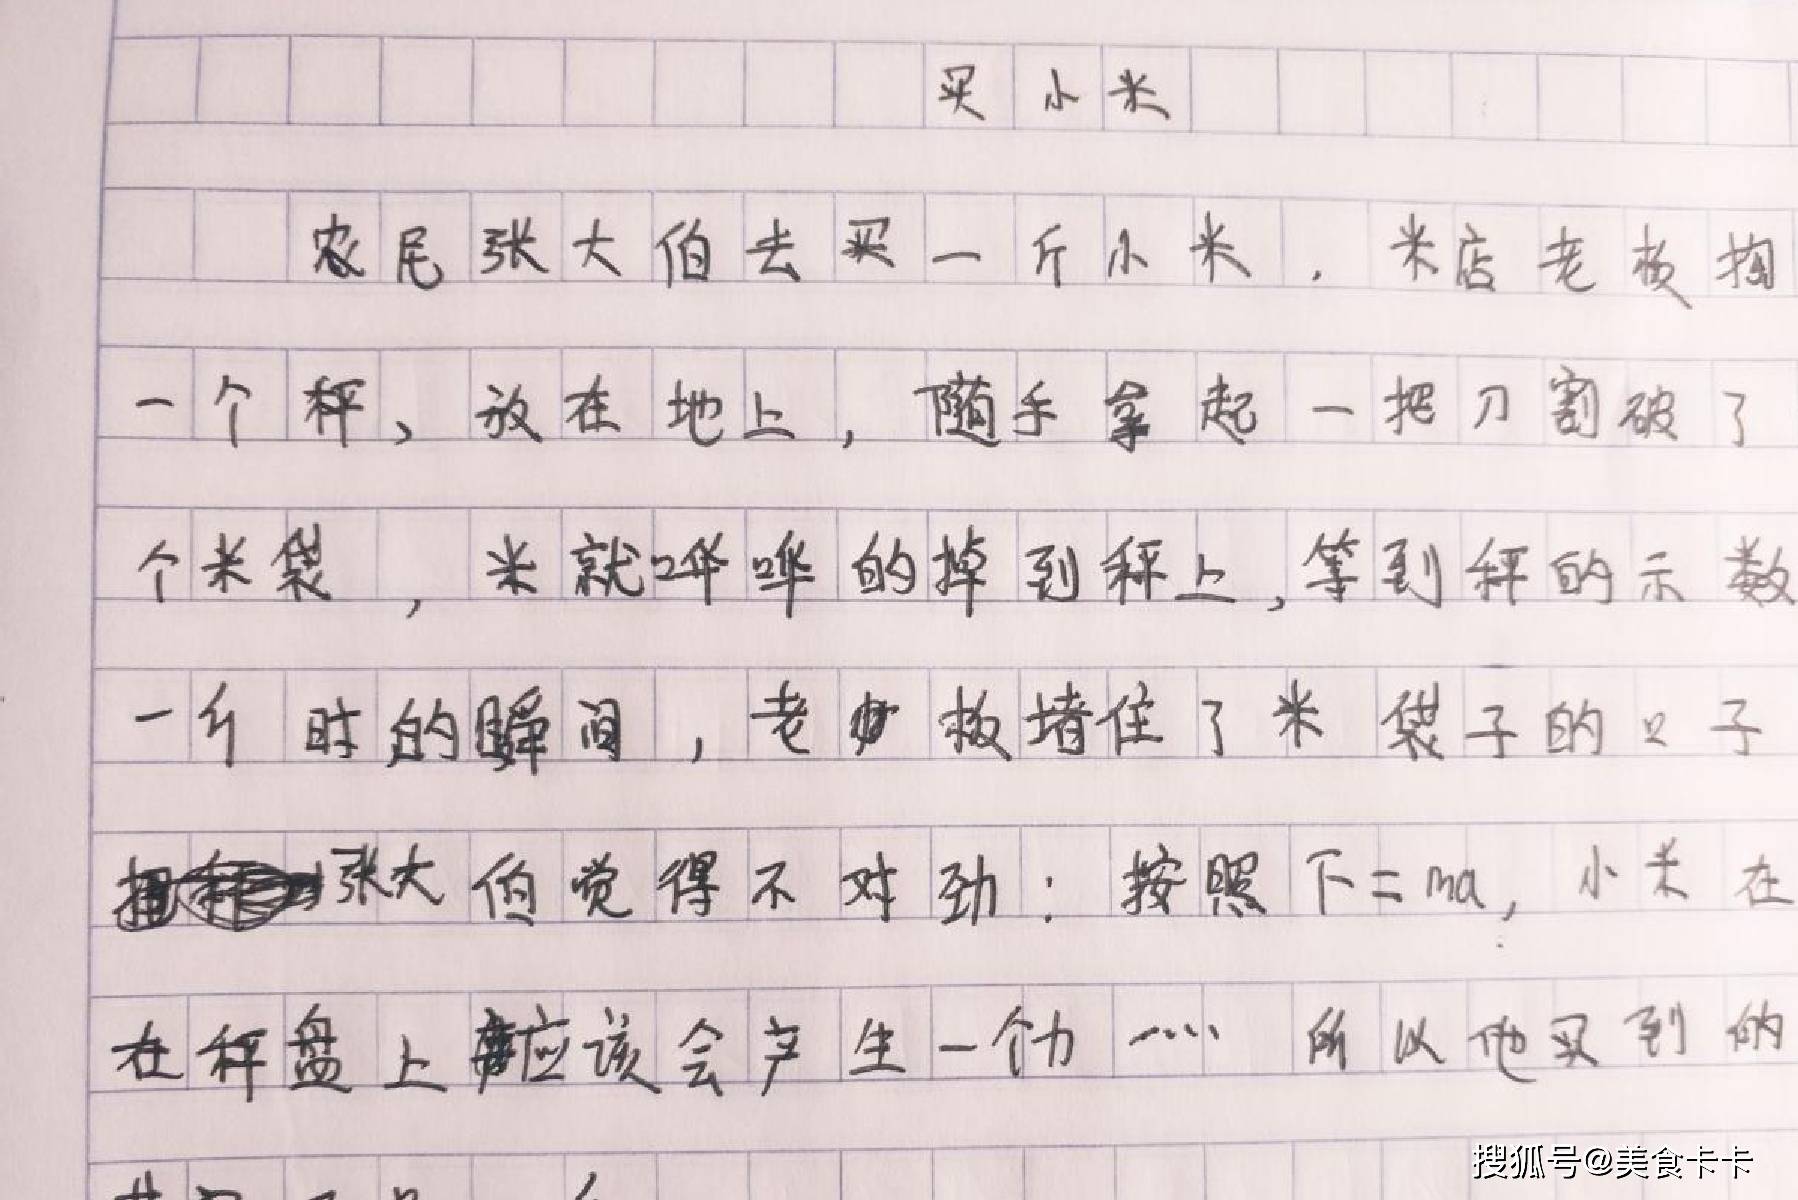 买小米
农民张大伯去买一斤小米.米店老板掏
一个秤、放在地上,随手拿起一把刀割破了
个米袋,米就哗哗的掉到秤上,等到秤的示数
一斤时的瞬间,老板堵住了米袋子的口子
张大伯觉得不对劲:按照F=ma,小米在
在秤盘上应该会产生一个力……所以他买到的
搜狐号@美食卡卡